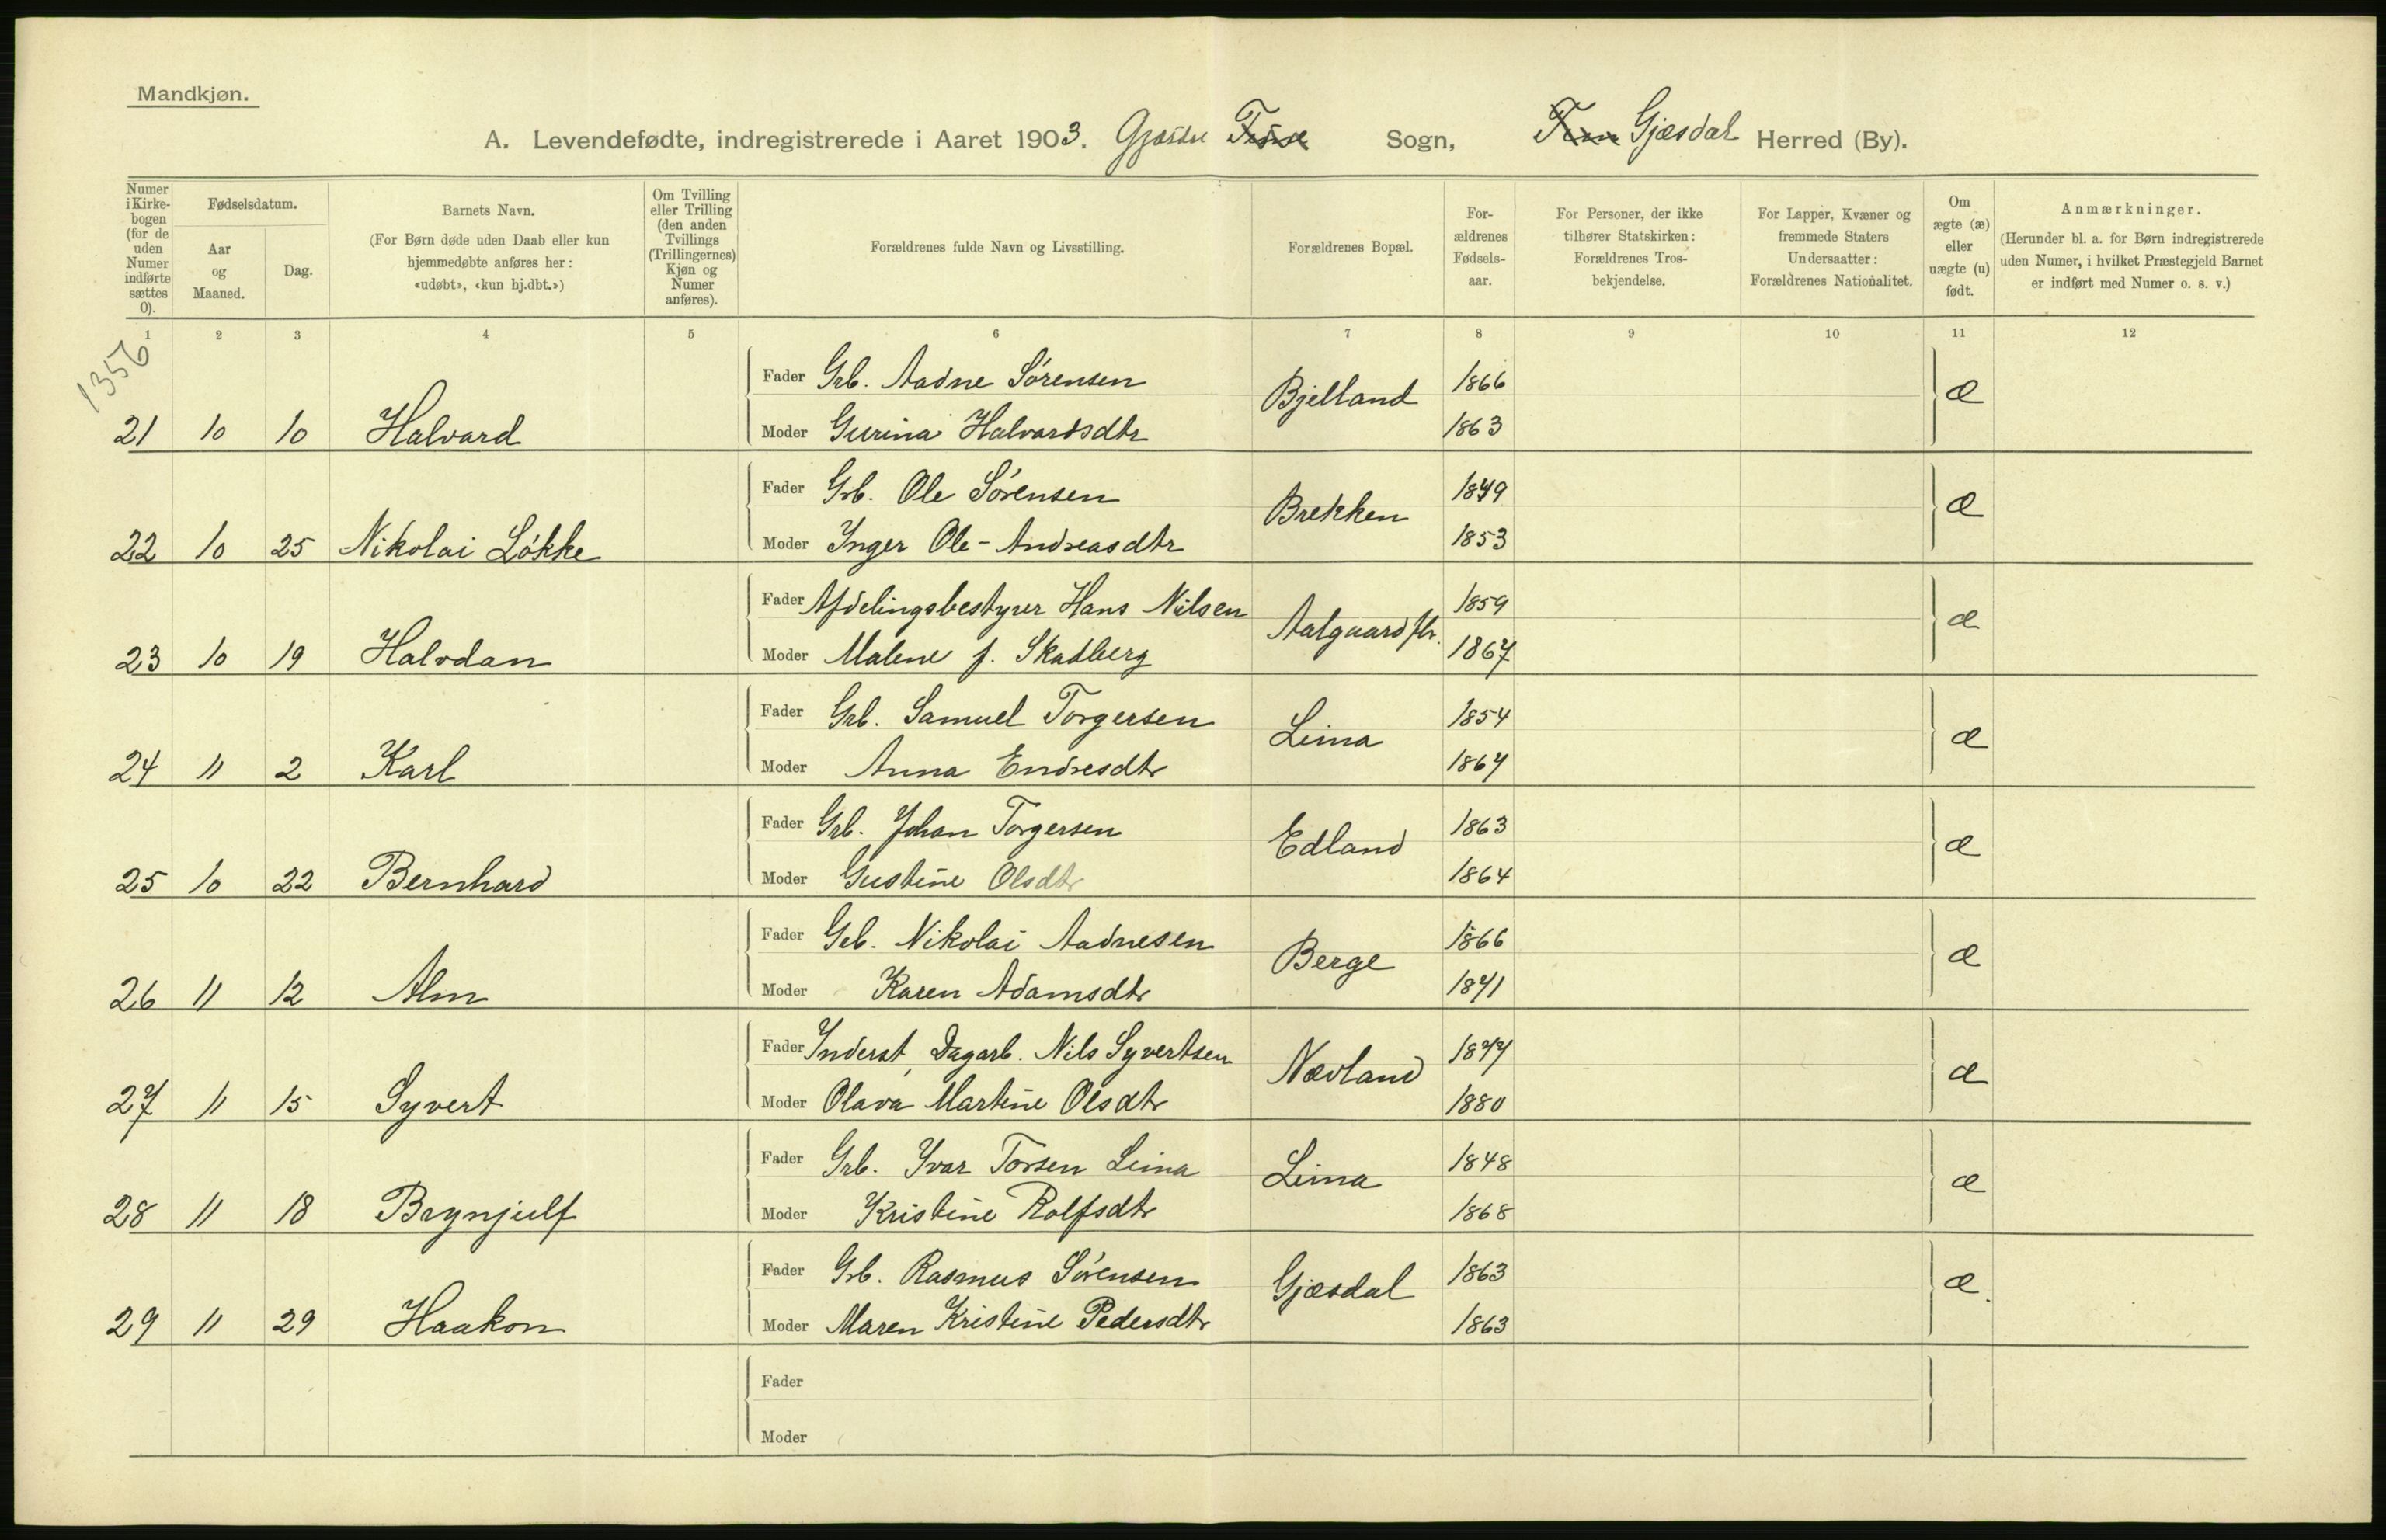 Mandkjøn.
A. Levendefødte, indregistrerede i Aaret 1903. Sogn, Gjæsdal Herred (By).
Numer i Kirkebogen (for de uden Numer indførte sættes 0).
Fødselsdatum.
Aar og Maaned.
Dag.
Barnets Navn.
(For Børn døde uden Daab eller kun hjemmedøbte anføres her: «udøbt», «kun hj.dbt.»)
Om Tvilling eller Trilling (den anden Tvillings (Trillingernes) Kjøn og Numer anføres).
Forældrenes fulde Navn og Livsstilling.
Forældrenes Bopæl.
Forældrenes Fødselsaar.
For Personer, der ikke tilhører Statskirken: Forældrenes Trosbekjendelse.
For Lapper, Kvæner og fremmede Staters Undersaatter: Forældrenes Nationalitet.
Om ægte (æ) eller uægte (u) født.
Anmærkninger.
(Herunder bl. a. for Børn indregistrerede uden Numer, i hvilket Præstegjeld Barnet er indført med Numer o. s. v.)
1 2 3 4 5 6 7 8 9 10 11 12
1356
Fader Grb. Aadne Sørensen Bjelland 1866 æ
21 10 10 Halvard Moder Gurina Halvardsdtr 1863
Fader Grb. Ole Sørensen Brekken 1849 æ
22 10 25 Nikolai Løkke Moder Inger Ole-Andreasdtr 1853
Fader Afdelingsbestyrer Hans Nilsen Aalgaard fbr. 1859 æ
23 10 19 Halvdan Moder Malene f. Skadberg 1867
Fader Grb. Samuel Torgersen Lima 1854 æ
24 11 2 Karl Moder Anna Endresdtr 1867
Fader Grb. Johan Torgersen Edland 1863 æ
25 10 22 Bernhard Moder Gustine Olsdtr 1864
Fader Grb. Nikolai Aadnesen Berge 1866 æ
26 11 12 Alm Moder Karen Adamsdtr 1871
Fader Inderst, Dagarb. Nils Syvertsen Nævland 1877 æ
27 11 15 Syvert Moder Olava Martine Olsdtr 1880
Fader Grb. Ivar Torsen Lima Lima 1848 æ
28 11 18 Brynjulf Moder Kristine Rolfsdtr 1868
Fader Grb. Rasmus Sørensen Gjæsdal 1863 æ.
29 11 29 Haakon Moder Maren Kristine Pedersdtr 1863
Fader
Moder